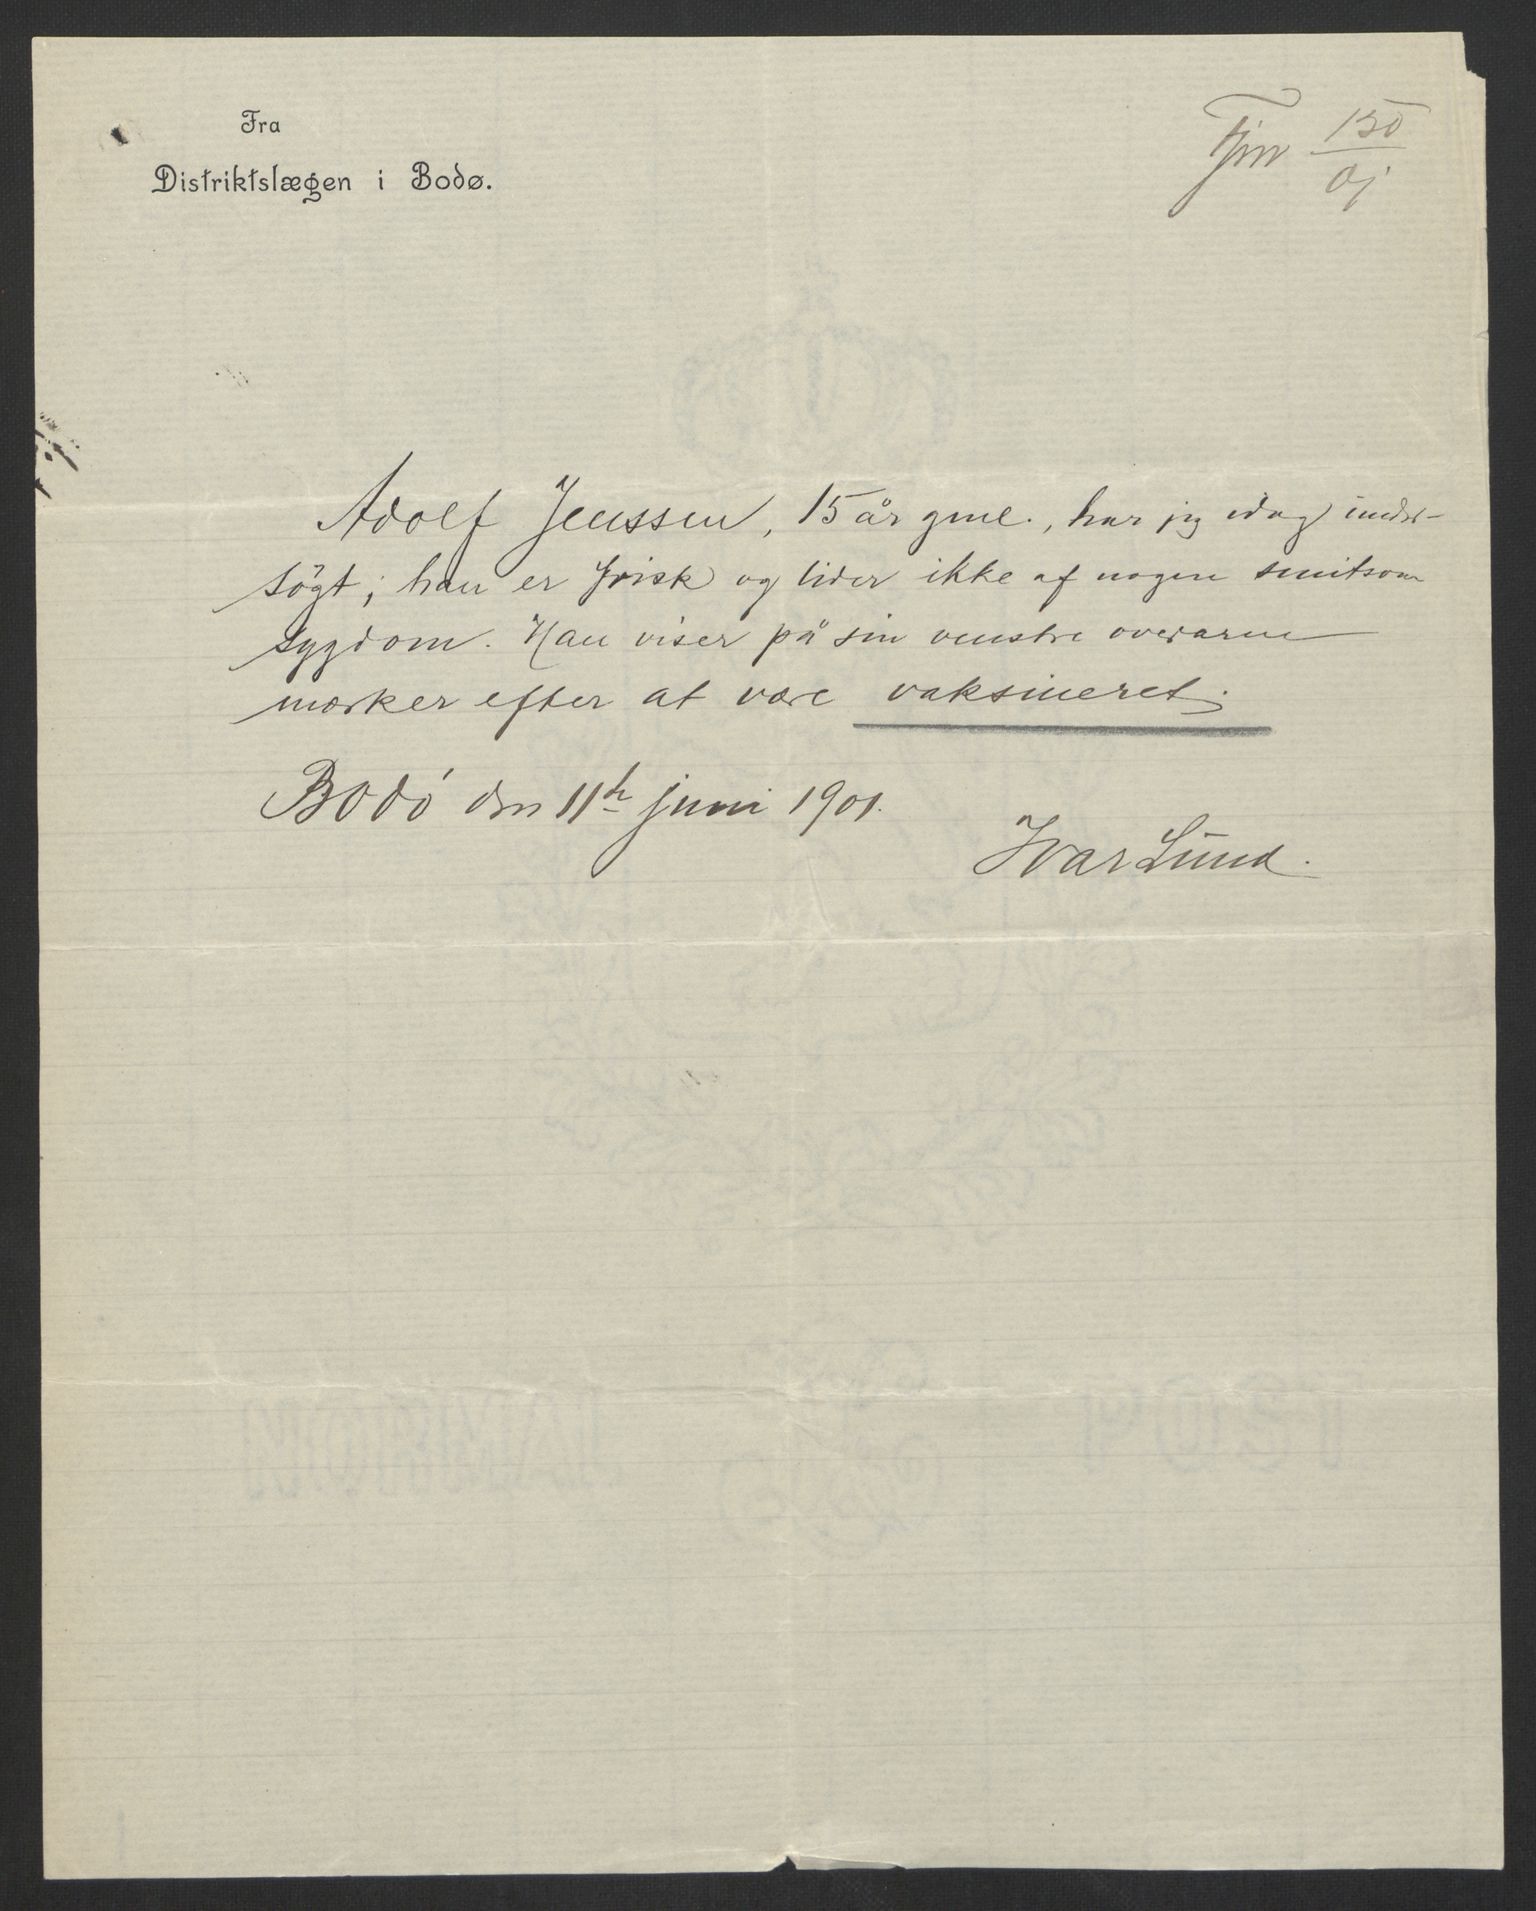 Fra
Distriktslægen i Bodø.
Fjnr 150/01
Adolf Jenssen, 15 år gml., har jeg idag under-
søgt; han er frisk og lider ikke af nogen smitsom
sygdom. Han viser på sin venstre overarm
mærker efter at være vaksineret.
Bodö den 11te juni 1901.
Ivar Lund.